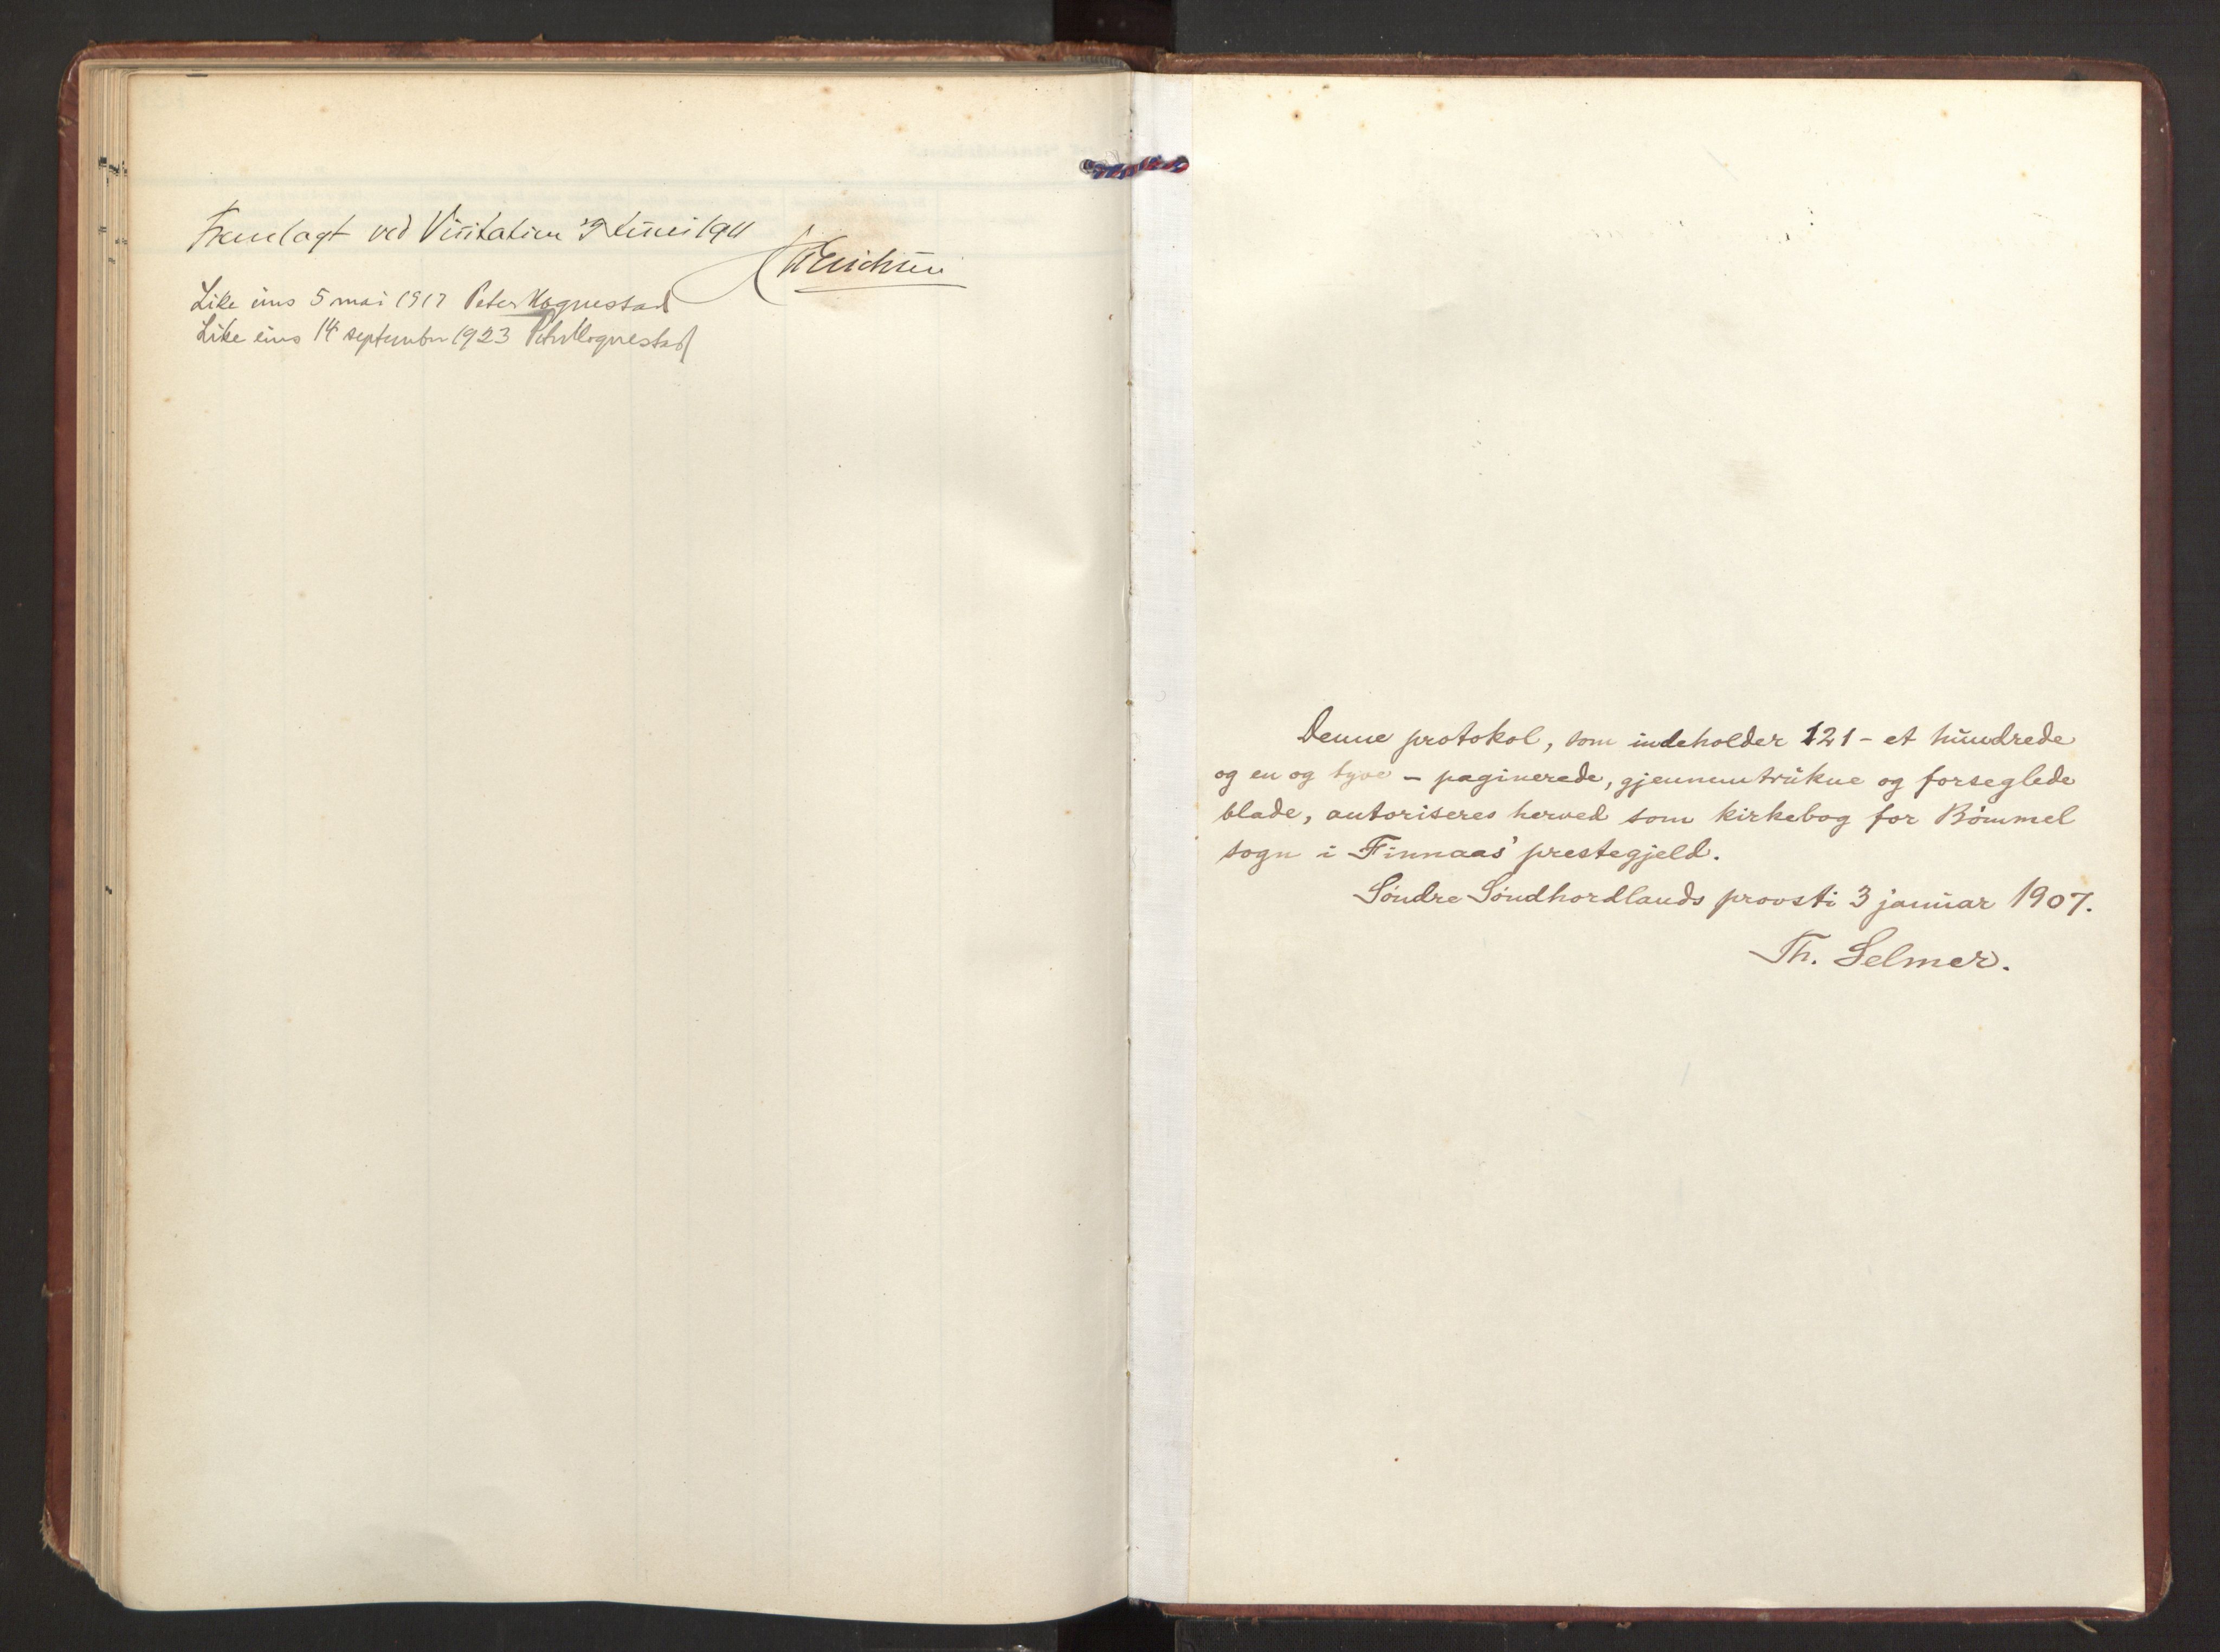 Fremlagt ved Visitation Juni 1911
Erichsen
Like eins 5 mai 1917 Peter Hognestad
Like eins 14 september 1923 Peter Hognestad
Denne protokol, som indeholder 121 – et hundrede
og en og tyve – paginerede, gjennemtrukne og forseglede
blade, autoriseres herved som kirkebog for Bömmel
sogn i Finnaas' prestegjeld.
Söndre Söndhordlands provsti 3 januar 1907.
Th. Selmer.